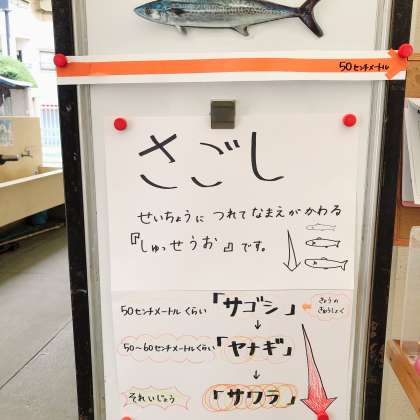 50センチメートル
さごし
せいちょうに つれて なまえが かわる
『しゅっせうお』です。
50センチメートル くらい 「サゴシ」 きょうの きゅうしょく
↓
50～60センチメートル くらい 「ヤナギ」
↓
それ いじょう 「サワラ」